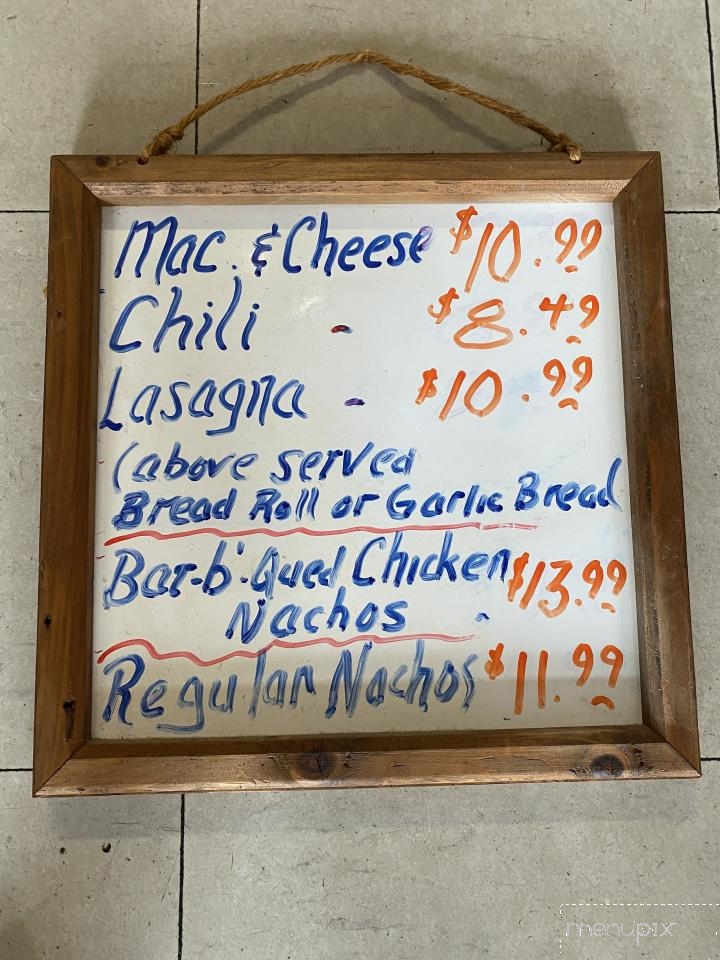 Mac. & Cheese $10.99
Chili - $8.49
Lasagna - $10.99
(above served
Bread Roll or Garlic Bread
Bar-b'-Qued Chicken $13.99
Nachos -
Regular Nachos $11.99
menupix